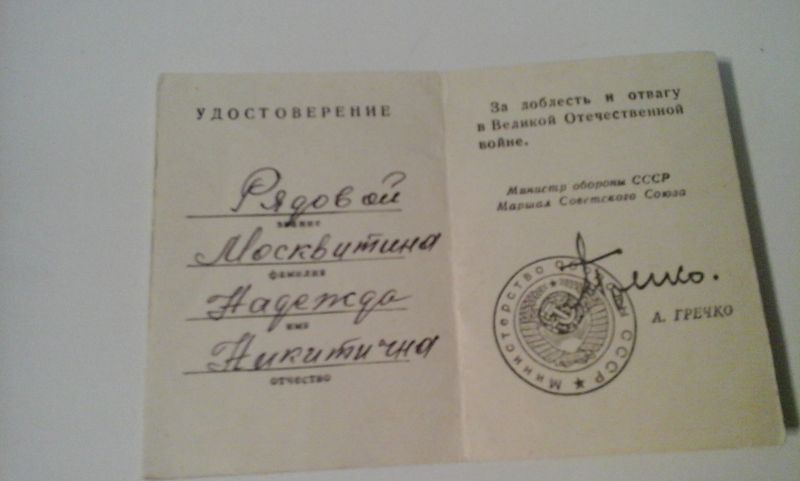 УДОСТОВЕРЕНИЕ
Рядовой
звание
Москвитина
фамилия
Надежда
имя
Никитична
отчество
За доблесть и отвагу
в Великой Отечественной
войне.
Министр обороны СССР
Маршал Советского Союза
Гречко.
А. ГРЕЧКО
Министерство обороны СССР